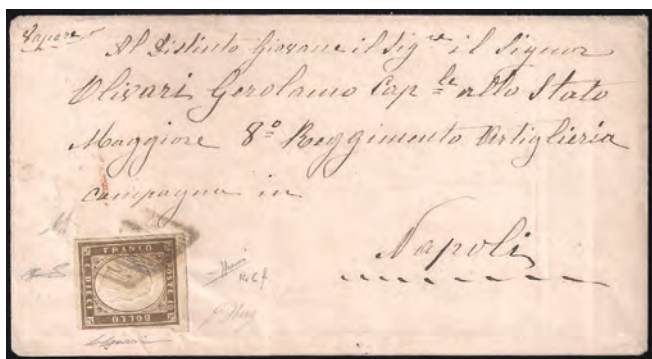 Vapore
Al Distinto Giovane il Sig.re il Signor
Olivari Gerolamo Cap.le allo Stato
Maggiore 8º Reggimento Artiglieria
campagna in
Napoli
FRANCO
C. DIECI
POSTE 10
BOLLO